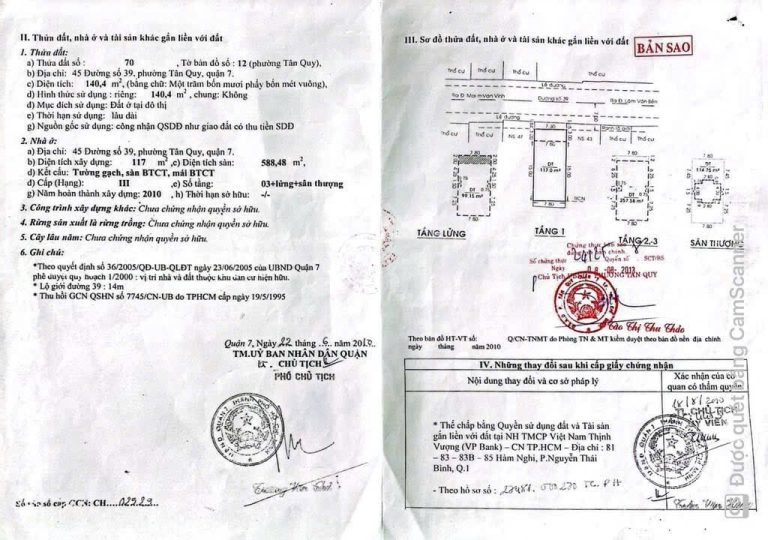 II. Thửa đất, nhà ở và tài sản khác gắn liền với đất
1. Thửa đất:
a) Thửa đất số : 70 , Tờ bản đồ số : 12 (phường Tân Quy),
b) Địa chỉ: 45 Đường số 39, phường Tân Quy, quận 7.
c) Diện tích: 140,4 m², (bằng chữ: Một trăm bốn mươi phẩy bốn mét vuông),
d) Hình thức sử dụng : riêng: 140,4 m², chung: Không
đ) Mục đích sử dụng: Đất ở tại đô thị
e) Thời hạn sử dụng: lâu dài
g) Nguồn gốc sử dụng: công nhận QSDĐ như giao đất có thu tiền SDĐ
2. Nhà ở:
a) Địa chỉ: 45 Đường số 39, phường Tân Quy, quận 7.
b) Diện tích xây dựng: 117 m² ,c) Diện tích sàn: 588,48 m²,
d) Kết cấu: Tường gạch, sàn BTCT, mái BTCT
đ) Cấp (Hạng): III ,e) Số tầng: 03+lửng+sân thượng
g) Năm hoàn thành xây dựng: 2010 , h) Thời hạn sở hữu: -/-
3. Công trình xây dựng khác: Chưa chứng nhận quyền sở hữu.
4. Rừng sản xuất là rừng trồng: Chưa chứng nhận quyền sở hữu.
5. Cây lâu năm: Chưa chứng nhận quyền sở hữu.
6. Ghi chú:
*Theo quyết định số 36/2005/QĐ-UB-QLĐT ngày 23/06/2005 của UBND Quận 7
phê duyệt quy hoạch 1/2000 : vị trí nhà và đất thuộc khu dân cư hiện hữu.
* Lộ giới đường 39 : 14m
* Thu hồi GCN QSHN số 7745/CN-UB do TPHCM cấp ngày 19/5/1995
Quận 7, Ngày 22 tháng 6 năm 2010
TM.UỶ BAN NHÂN DÂN QUẬN
KT. CHỦ TỊCH
PHÓ CHỦ TỊCH
Số vào sổ cấp GCN: CH 02929
III. Sơ đồ thửa đất, nhà ở và tài sản khác gắn liền với đất
BẢN SAO
THỔ CƯ THỔ CƯ THỔ CƯ THỔ CƯ
Lề đường
Đường số 39
Lề đường
THỔ CƯ THỔ CƯ NS 47 NS 43 THỔ CƯ
7.80 7.80 7.80 7.80
DT
99.15 m²
DT
117.0 m²
DT
257.58 m²
DT
114.75 m²
TẦNG LỬNG TẦNG 1 TẦNG 2,3 SÂN THƯỢNG
Chứng thực bản sao
Số chứng thực Quyển số SCT/BS
Ngày 08 -08- 2013
Đào Thị Thu Thảo
Theo bản đồ HT-VT số: Q/CN-TNMT do Phòng TN & MT kiểm duyệt theo bản đồ nền địa chính
ngày tháng năm 2010
IV. Những thay đổi sau khi cấp giấy chứng nhận
Nội dung thay đổi và cơ sở pháp lý
Xác nhận của cơ
quan có thẩm quyền
* Thế chấp bằng Quyền sử dụng đất và Tài sản
gắn liền với đất tại NH TMCP Việt Nam Thịnh
Vượng (VP Bank) – CN TP.HCM – Địa chỉ : 81
– 83 – 83B – 85 Hàm Nghi, P.Nguyễn Thái
Bình, Q.1
- Theo hồ sơ số :
CS Được quét bằng CamScanner